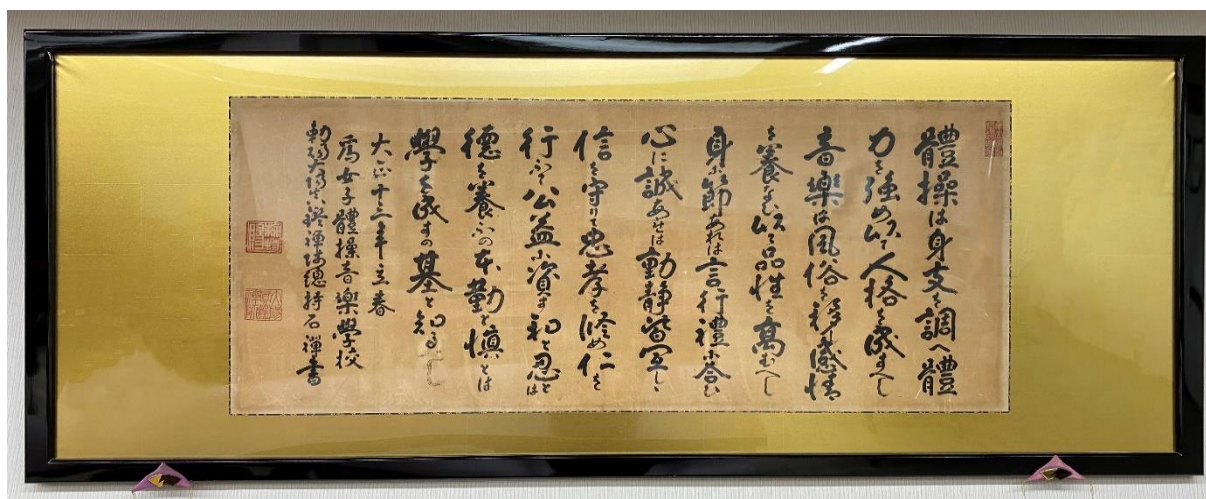 體操は身支を調へ體
力を強め以て人格を成すへし
音樂は風俗を移し感情
を養ふ以て品性を高むへし
身に節あれは言行禮に合ひ
心に誠あれは動静皆宜し
信を守りて忠孝を修め仁を
行ふて公益に資す和と忍とは
徳を養ふの本勤と慎とは
學を成すの基と知るへし
大正十三年立春
為女子體操音樂學校
禅師總持石禅書